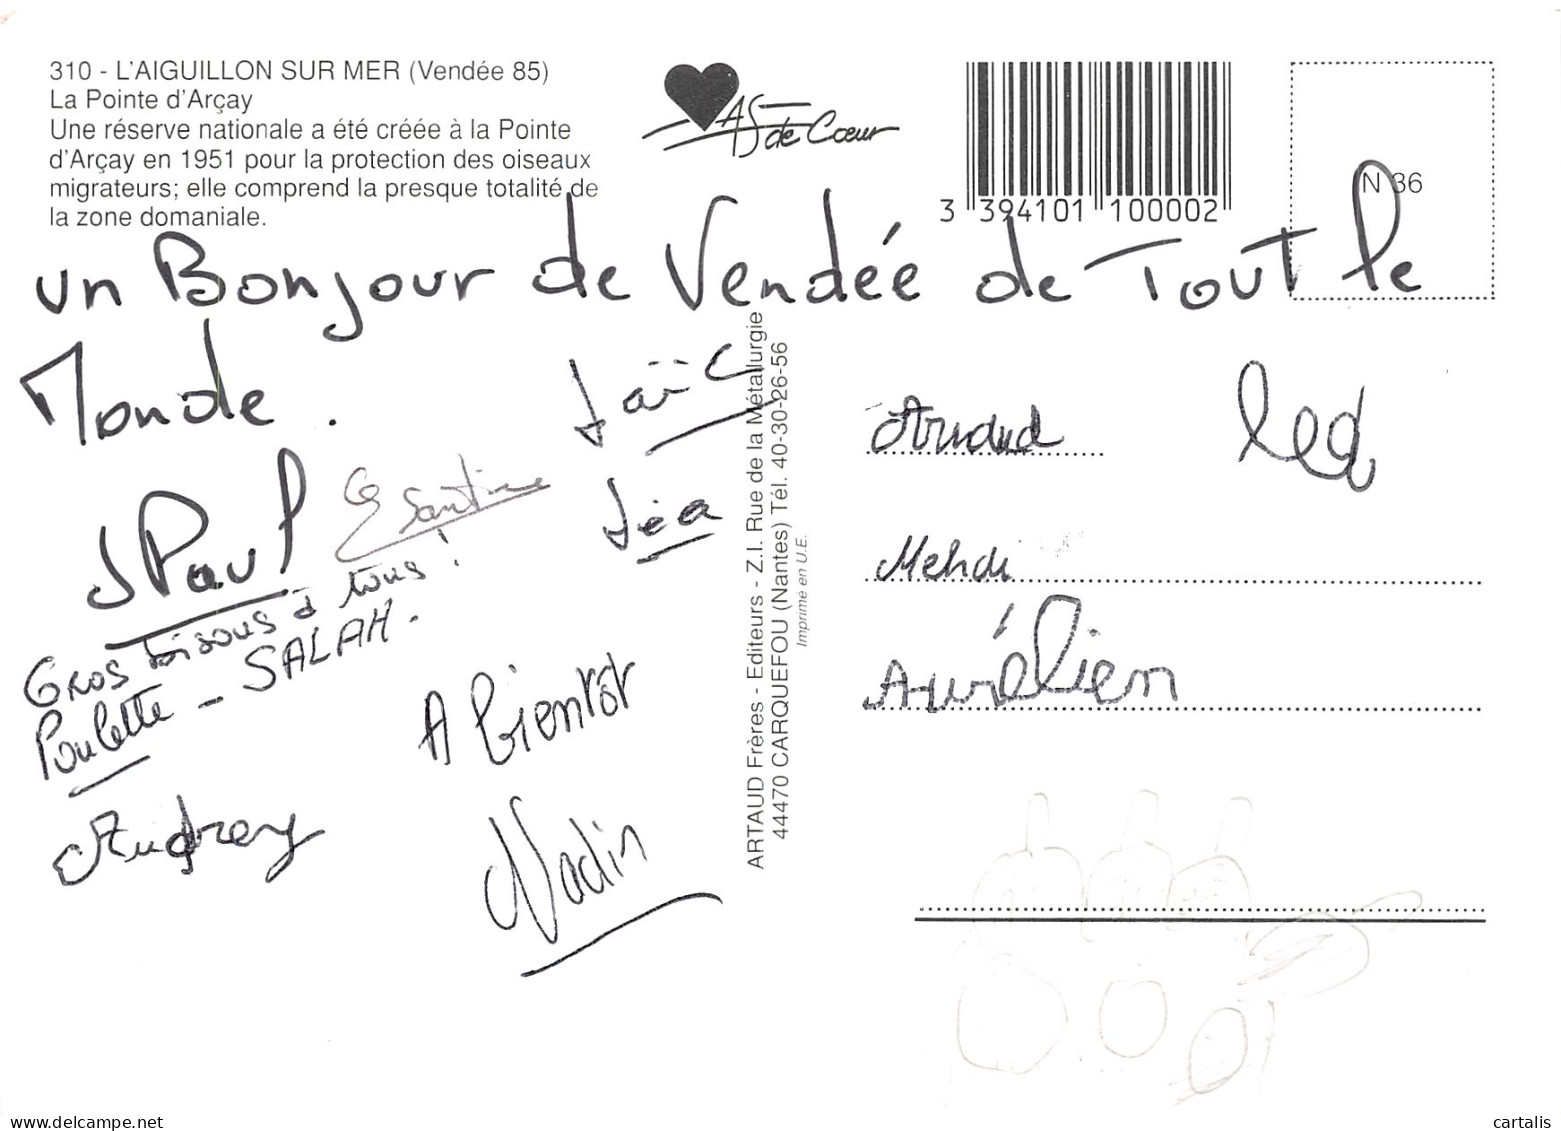 310 - L'AIGUILLON SUR MER (Vendée 85)
La Pointe d'Arçay
Une réserve nationale a été créée à la Pointe
d'Arçay en 1951 pour la protection des oiseaux
migrateurs; elle comprend la presque totalité de
la zone domaniale.
AS de Cœur
3 394101 100002
N 36
un Bonjour de Vendée de Tout le
Monde.
Loïc
JPaul
Santine
Léa
Gros bisous à tous !
Poulette - SALAH.
A bientôt
Audrey
Nadin
ARTAUD Frères - Editeurs - Z.I. Rue de la Métallurgie
44470 CARQUEFOU (Nantes) Tél. 40-30-26-56
Imprimé en U.E.
Arnaud
Mehdi
Aurélien
www.delcampe.net
cartalis